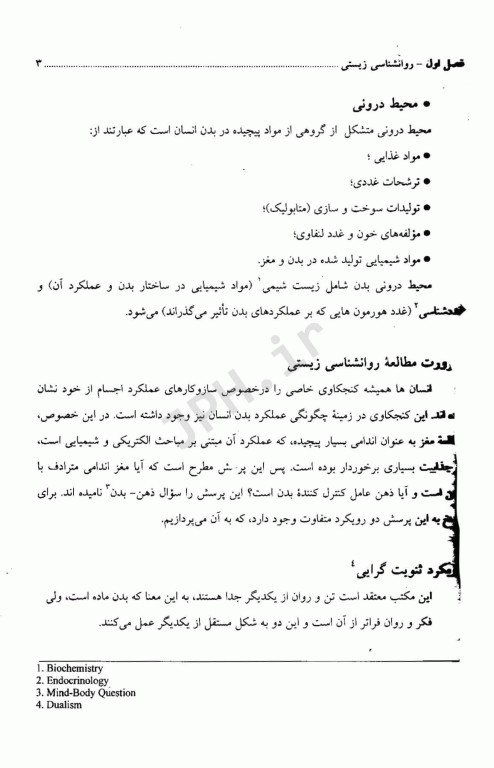 فصل اول – روانشناسی زیستی ........................................................................ ۳
● محیط درونی
محیط درونی متشکل از گروهی از مواد پیچیده در بدن انسان است که عبارتند از:
● مواد غذایی ؛
● ترشحات غددی؛
● تولیدات سوخت و سازی (متابولیک)؛
● مؤلفه‌های خون و غدد لنفاوی؛
● مواد شیمیایی تولید شده در بدن و مغز.
محیط درونی بدن شامل زیست شیمی¹ (مواد شیمیایی در ساختار بدن و عملکرد آن) و
(غدد هورمون هایی که بر عملکردهای بدن تأثیر می‌گذراند) می‌شود.
مطالعهٔ روانشناسی زیستی
انسان ها همیشه کنجکاوی خاصی را درخصوص سازوکارهای عملکرد اجسام از خود نشان
این کنجکاوی در زمینهٔ چگونگی عملکرد بدن انسان نیز وجود داشته است. در این خصوص،
مغز به عنوان اندامی بسیار پیچیده، که عملکرد آن مبتنی بر مباحث الکتریکی و شیمیایی است،
جذابیت بسیاری برخوردار بوده است. پس این پرسش مطرح است که آیا مغز اندامی مترادف با
است و آیا ذهن عامل کنترل کنندهٔ بدن است؟ این پرسش را سؤال ذهن- بدن³ نامیده اند. برای
به این پرسش دو رویکرد متفاوت وجود دارد، که به آن می‌پردازیم.
ثنویت گرایی⁴
این مکتب معتقد است تن و روان از یکدیگر جدا هستند، به این معنا که بدن ماده است، ولی
فکر و روان فراتر از آن است و این دو به شکل مستقل از یکدیگر عمل می‌کنند.
1. Biochemistry
2. Endocrinology
3. Mind-Body Question
4. Dualism
JPH.ir